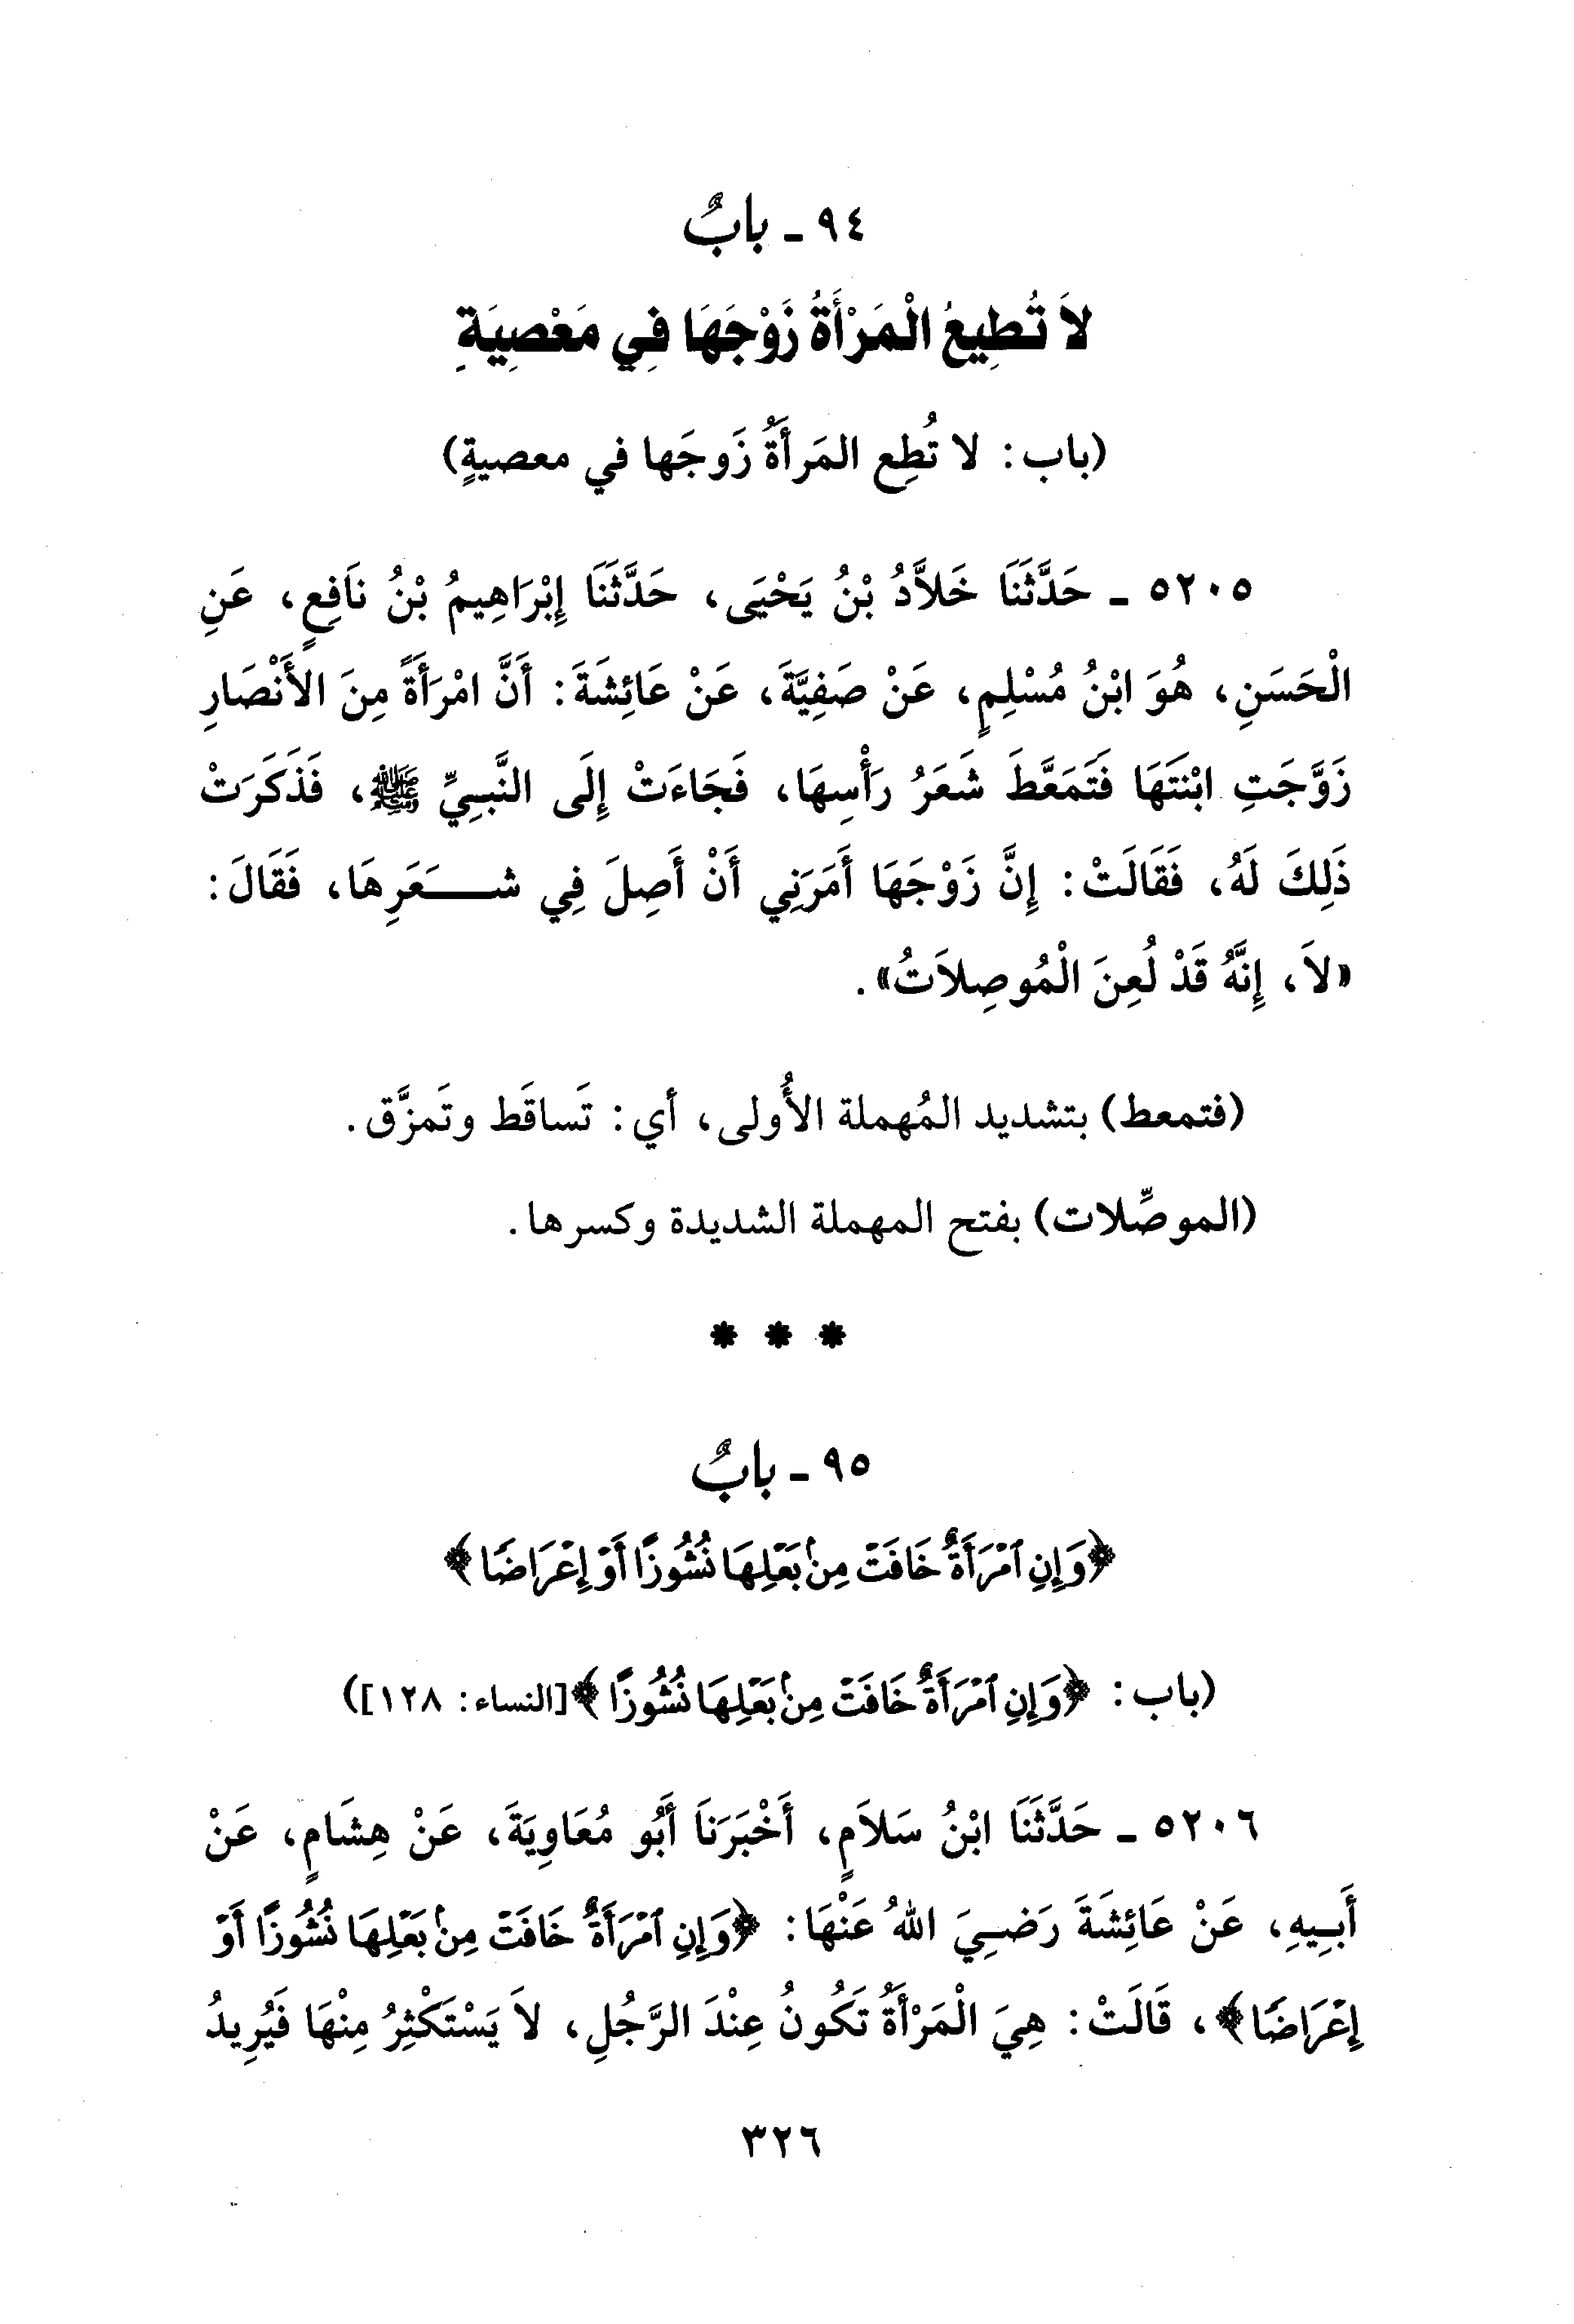 ٩٤ ـ بابٌ
لاَ تُطِيعُ الْمَرْأَةُ زَوْجَهَا فِي مَعْصِيَةِ
(باب: لا تُطِع المَرأَةُ زَوجَها في معصيةٍ)
٥٢٠٥ ـ حَدَّثَنَا خَلاَّدُ بْنُ يَحْيَى، حَدَّثَنَا إِبْرَاهِيمُ بْنُ نَافِعٍ، عَنِ
الْحَسَنِ، هُوَ ابْنُ مُسْلِمٍ، عَنْ صَفِيَّةَ، عَنْ عَائِشَةَ: أَنَّ امْرَأَةً مِنَ الأَنْصَارِ
زَوَّجَتِ ابْنَتَهَا فَتَمَعَّطَ شَعَرُ رَأْسِهَا، فَجَاءَتْ إِلَى النَّبِيِّ ﷺ، فَذَكَرَتْ
ذَلِكَ لَهُ، فَقَالَتْ: إِنَّ زَوْجَهَا أَمَرَنِي أَنْ أَصِلَ فِي شَعَرِهَا، فَقَالَ:
«لاَ، إِنَّهُ قَدْ لُعِنَ الْمُوصِلاَتُ».
(فتمعط) بتشديد المُهملة الأُولى، أي: تَساقَط وتَمزَّق.
(الموصِّلات) بفتح المهملة الشديدة وكسرها.
* * *
٩٥ ـ بابٌ
﴿وَإِنِ ٱمْرَأَةٌ خَافَتْ مِنۢ بَعْلِهَا نُشُوزًا أَوْ إِعْرَاضًا﴾
(باب: ﴿وَإِنِ ٱمْرَأَةٌ خَافَتْ مِنۢ بَعْلِهَا نُشُوزًا﴾[النساء: ١٢٨])
٥٢٠٦ ـ حَدَّثَنَا ابْنُ سَلاَمٍ، أَخْبَرَنَا أَبُو مُعَاوِيَةَ، عَنْ هِشَامٍ، عَنْ
أَبِيهِ، عَنْ عَائِشَةَ رَضِيَ اللهُ عَنْهَا: ﴿وَإِنِ ٱمْرَأَةٌ خَافَتْ مِنۢ بَعْلِهَا نُشُوزًا أَوْ
إِعْرَاضًا﴾، قَالَتْ: هِيَ الْمَرْأَةُ تَكُونُ عِنْدَ الرَّجُلِ، لاَ يَسْتَكْثِرُ مِنْهَا فَيُرِيدُ
٣٢٦